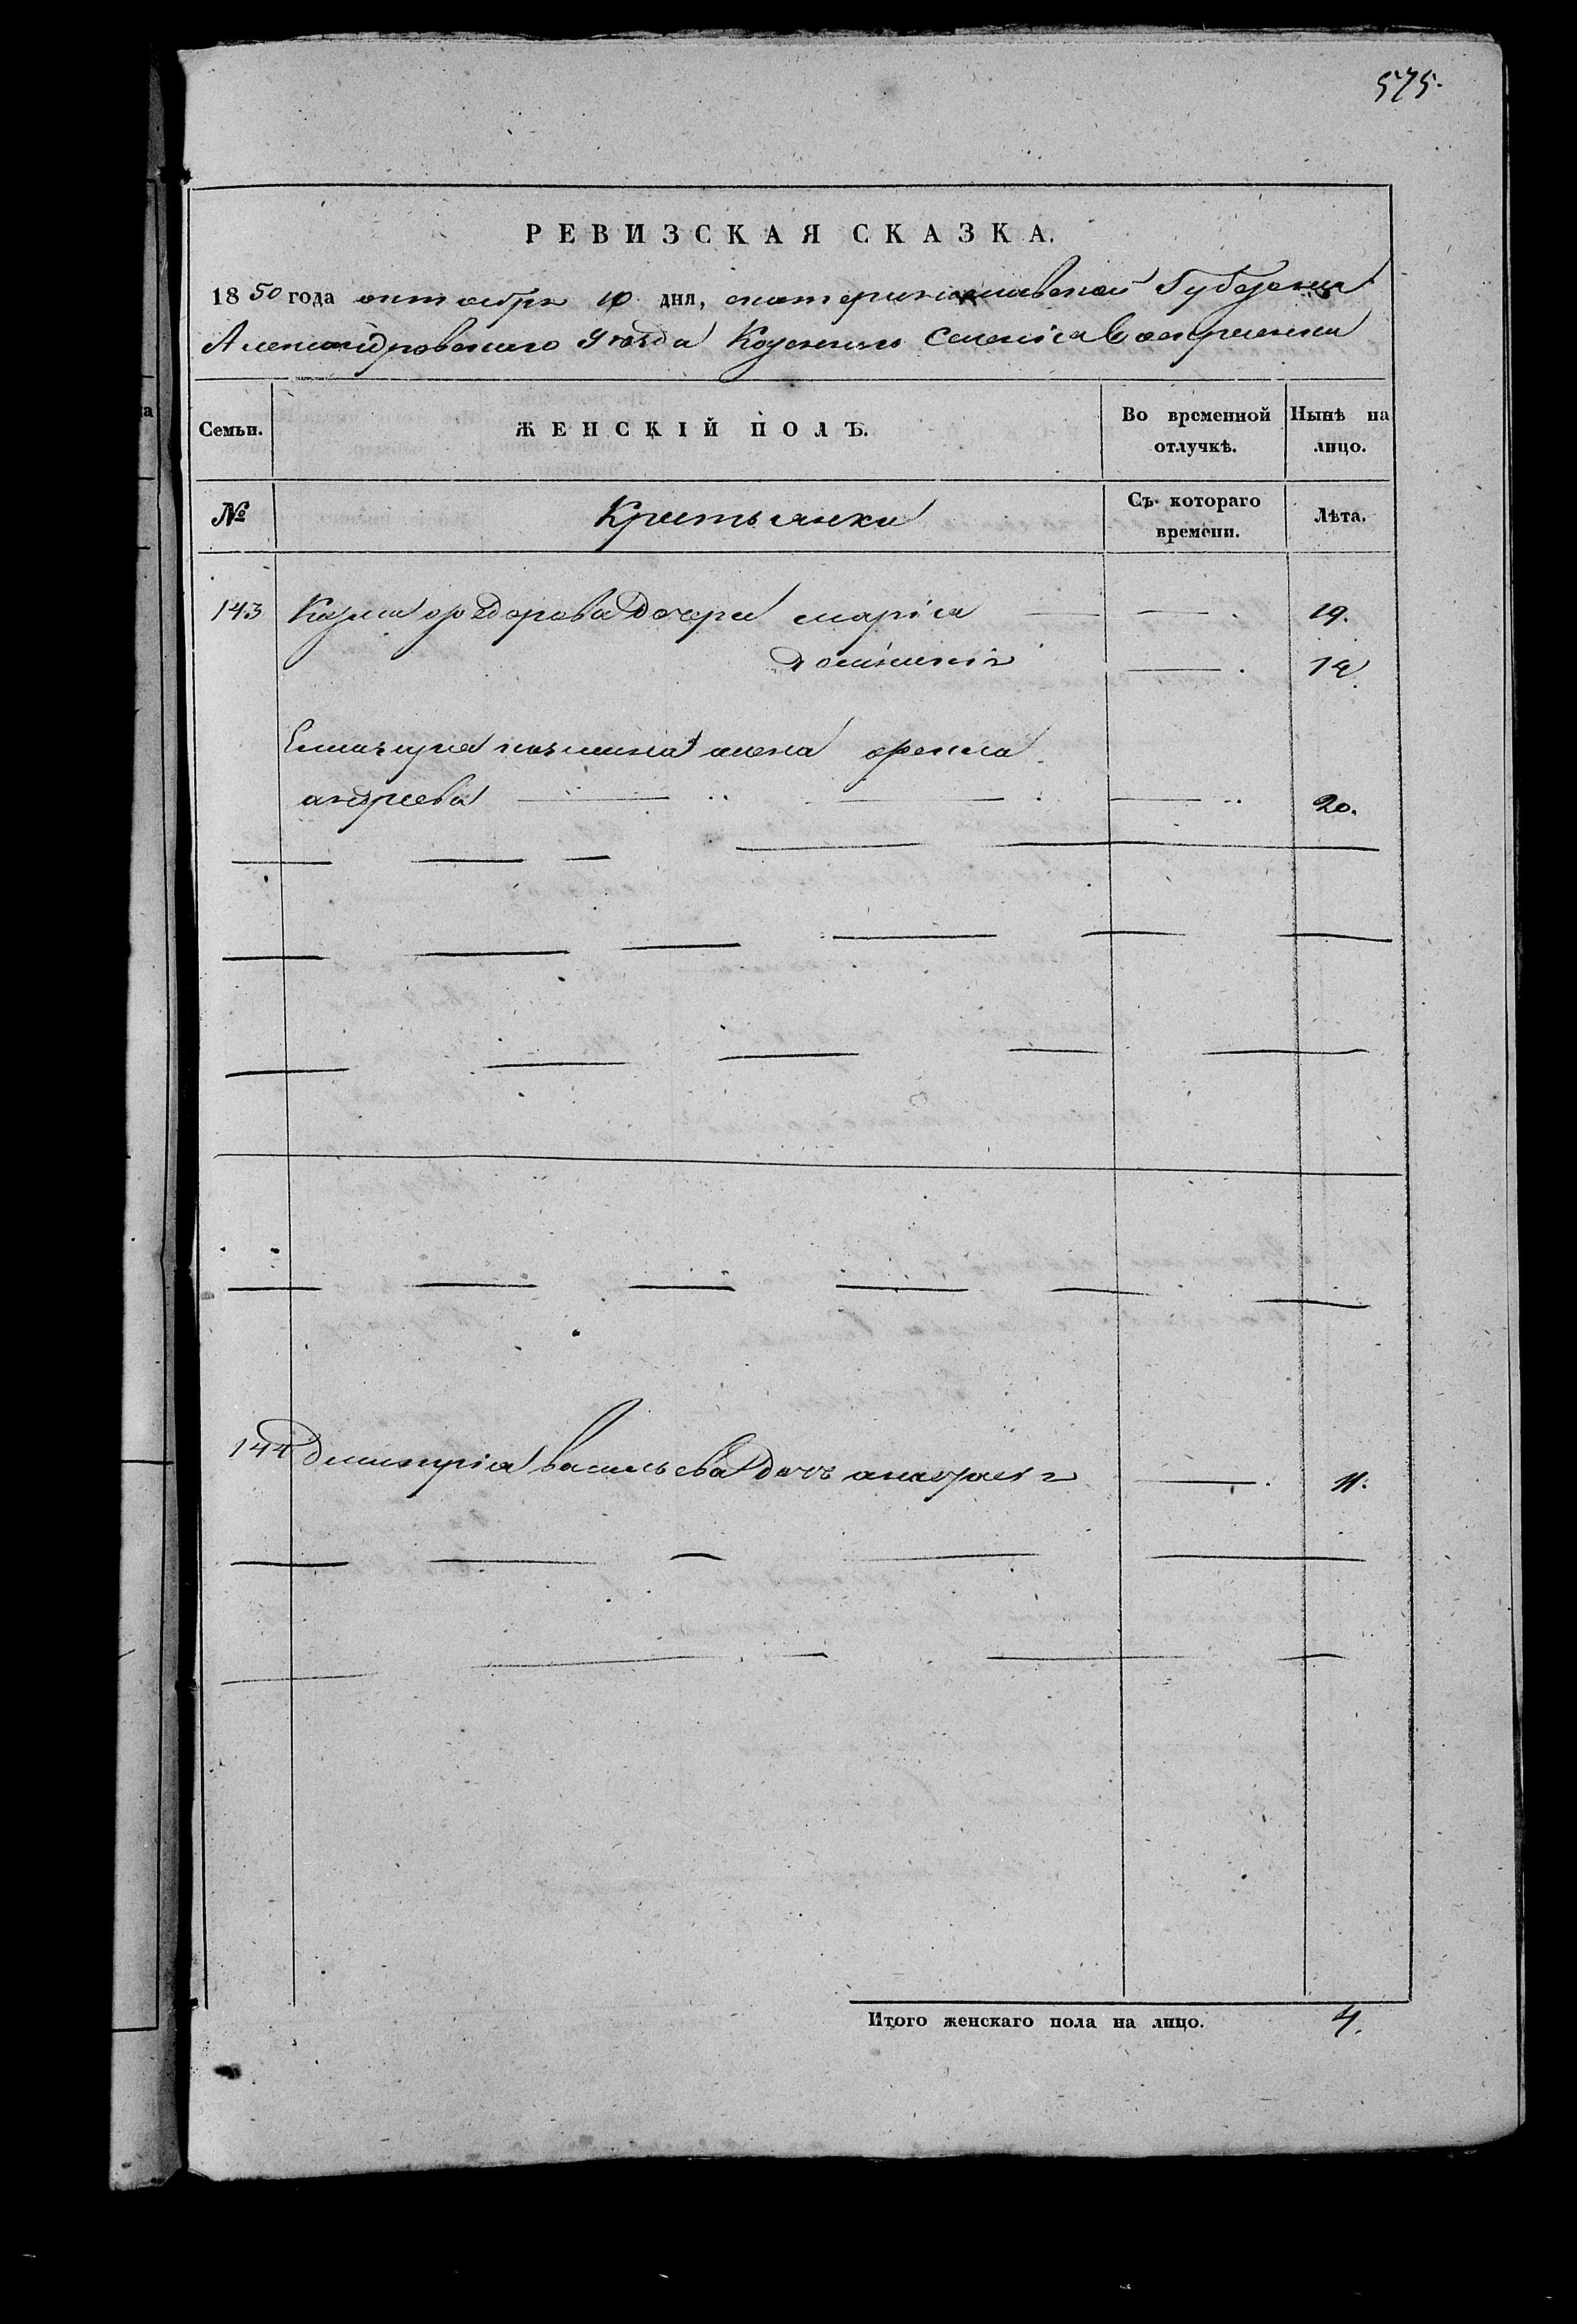 575.
РЕВИЗСКАЯ СКАЗКА.
1850 года октября 10 дня, екатеринославской Губернии
Александровского Уезда Казенного Селения Воскресенки
Семьи.
ЖЕНСКІЙ ПОЛЪ.
Во временной отлучкѣ.
Нынѣ на лицо.
№
Крестьянки
Съ котораго времени.
Лѣта.
143 Казма федорова дочери марія 19.
домникія 14
козмина жена
андреева 20.
144 Дмитрія васильева дочь анастасія 11.
Итого женскаго пола на лицо. 4.